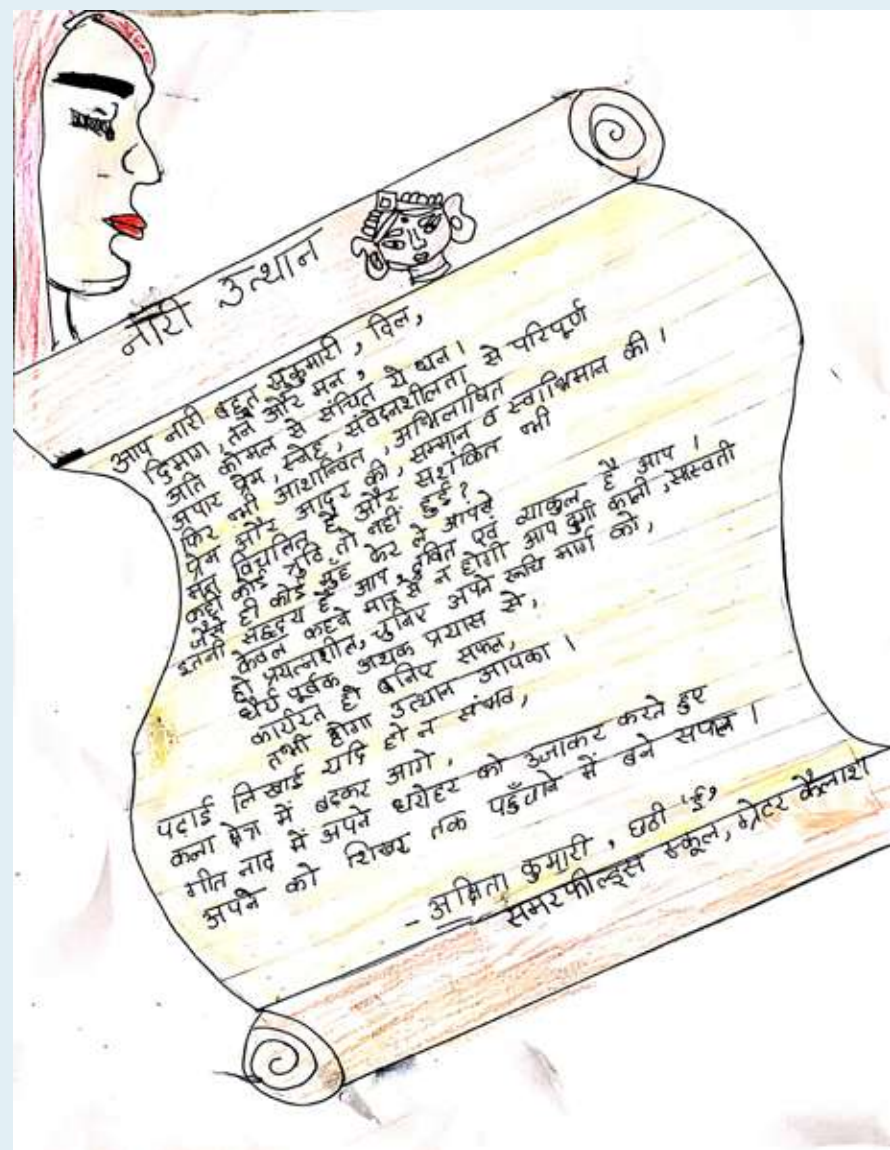 नारी उत्थान
आप नारी बहुत सुकुमारी, दिल,
दिमाग, तन और मन,
अति कोमल से संचित ये धन।
अपार प्रेम, स्नेह, संवेदनशीलता से परिपूर्ण
फिर भी आशान्वित, अभिलाषित
प्रेम और आदर की, सम्मान व स्वाभिमान की।
मन विचलित है और सशंकित भी
कहीं कोई त्रुटि तो नहीं हुई?
जैसे ही कोई मुँह फेर ले आपसे
इतनी सहृदय है आप, द्रवित एवं व्याकुल है आप।
केवल कहने मात्र से न होगी आप दुर्गा काली, सरस्वती
हो प्रयत्नशील, चुनिए अपने रूचि मार्ग को,
धैर्य पूर्वक अथक प्रयास से,
कार्यरत हो बनिए सफल,
तभी होगा उत्थान आपका।
पढाई लिखाई यदि हो न संभव,
कला क्षेत्र में बढकर आगे,
गीत नाद में अपने धरोहर को उजाकर करते हुए
अपने को शिखर तक पहुँचाने में बने सफल।
- अक्षिता कुमारी, छठी 'ई'
समरफील्ड्स स्कूल, ग्रेटर कैलाश